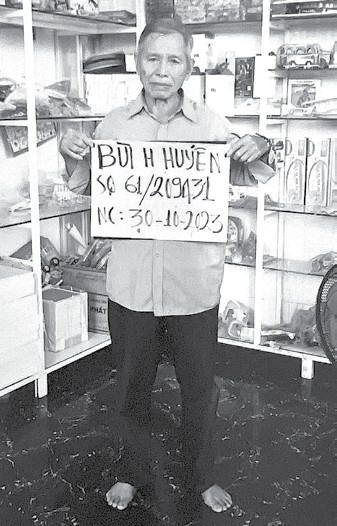 BÙI H HUYỀN
SỌ 61/209A31
NC: 30-10-2023
PHÁT